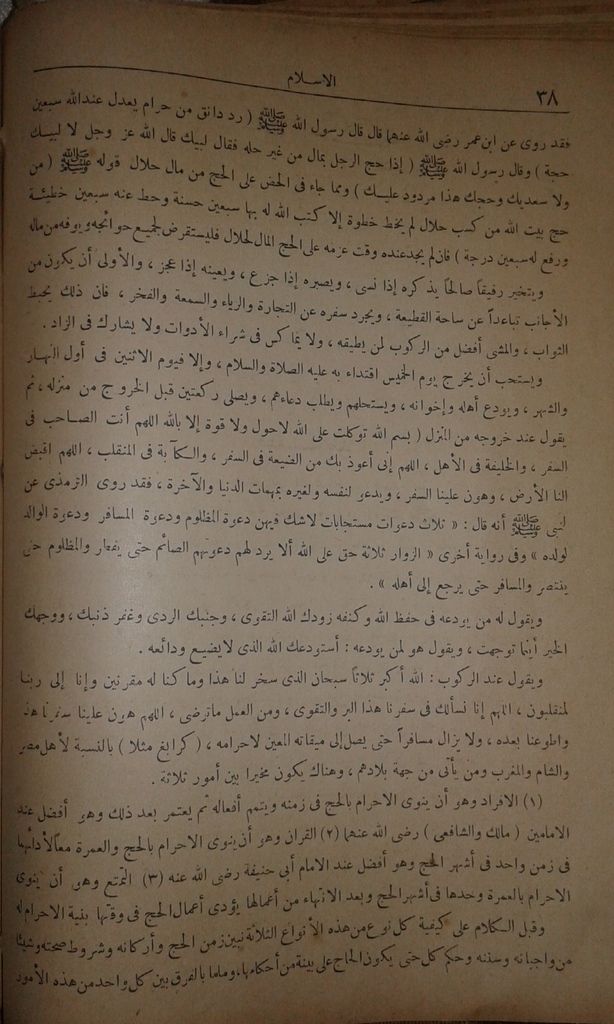 الاسلام
٣٨
فقد روى عن ابن عمر رضى الله عنهما قال قال رسول الله ﷺ ( رد دانق من حرام يعدل عند الله سبعين
حجة ) وقال رسول الله ﷺ ( إذا حج الرجل بمال من غير حله فقال لبيك قال الله عز وجل لا لبيك
ولا سعديك وحجك هذا مردود عليك ) ومما جاء فى الحض على الحج من مال حلال قوله ﷺ ( من
حج بيت الله من كسب حلال لم يخط خطوة إلا كتب الله له بها سبعين حسنة وحط عنه سبعين خطيئة
ورفع له سبعين درجة ) فان لم يجد عنده وقت عزمه على الحج المال الحلال فليستقرض لجميع حوائجه ويوفه من ماله
ويتخير رفيقاً صالحاً يذكره إذا نسى ، ويصبره إذا جزع ، ويعينه إذا عجز ، والأولى أن يكون من
الأجانب تباعداً عن ساحة القطيعة ، ويجرد سفره عن التجارة والرياء والسمعة والفخر ، فان ذلك يحبط
الثواب ، والمشى أفضل من الركوب لمن يطيقه ، ولا يماكس فى شراء الأدوات ولا يشارك فى الزاد .
ويستحب أن يخرج يوم الخميس اقتداء به عليه الصلاة والسلام ، وإلا فيوم الاثنين فى أول النهار
والشهر ، ويودع أهله وإخوانه ، ويستحلهم ويطلب دعاءهم ، ويصلى ركعتين قبل الخروج من منزله ، ثم
يقول عند خروجه من المنزل ( بسم الله توكلت على الله لاحول ولا قوة إلا بالله اللهم أنت الصاحب فى
السفر ، والخليفة فى الأهل ، اللهم إنى أعوذ بك من الضيعة فى السفر ، والكآبة فى المنقلب ، اللهم اقبض
لنا الأرض ، وهون علينا السفر ، ويدعو لنفسه ولغيره بمهمات الدنيا والآخرة ، فقد روى الترمذى عن
لنبى ﷺ أنه قال : « ثلاث دعوات مستجابات لاشك فيهن دعوة المظلوم ودعوة المسافر ودعوة الوالد
لولده » وفى رواية أخرى « الزوار ثلاثة حق على الله ألا يرد لهم دعوتهم الصائم حتى يفطر والمظلوم حتى
ينتصر والمسافر حتى يرجع إلى أهله » .
ويقول له من يودعه فى حفظ الله وكنفه زودك الله التقوى ، وجنبك الردى وغفر ذنبك ، ووجهك
الخير أينما توجهت ، ويقول هو لمن يودعه : أستودعك الله الذى لا يضيع ودائعه .
ويقول عند الركوب : الله أكبر ثلاثاً سبحان الذى سخر لنا هذا وما كنا له مقرنين وإنا إلى ربنا
لمنقلبون ، اللهم إنا نسألك فى سفرنا هذا البر والتقوى ، ومن العمل ما ترضى ، اللهم هون علينا سفرنا هذ
واطو عنا بعده ، ولا يزال مسافراً حتى يصل إلى ميقاته المعين لاحرامه ، ( كرابغ مثلا ) بالنسبة لأهل مصر
والشام والمغرب ومن يأتى من جهة بلادهم ، وهناك يكون مخيرا بين أمور ثلاثة .
(١) الافراد وهو أن ينوى الاحرام بالحج فى زمنه ويتمم أفعاله ثم يعتمر بعد ذلك وهو أفضل عند
الامامين ( مالك والشافعى ) رضى الله عنهما (٢) القران وهو أن ينوى الاحرام بالحج والعمرة معاً لأدائهما
فى زمن واحد فى أشهر الحج وهو أفضل عند الامام أبى حنيفة رضى الله عنه (٣) التمتع وهو أن ينوى
الاحرام بالعمرة وحدها فى أشهر الحج وبعد الانتهاء من أعمالها يؤدى أعمال الحج فى وقتها بنية الاحرام له
وقبل الكلام على كيفية كل نوع من هذه الأنواع الثلاثة نبين زمن الحج وأركانه وشروط صحته وشيئا
من واجباته وسننه وحكم كل حتى يكون الحاج على بينة من أحكامها، وملما بالفرق بين كل واحد من هذه الأمور